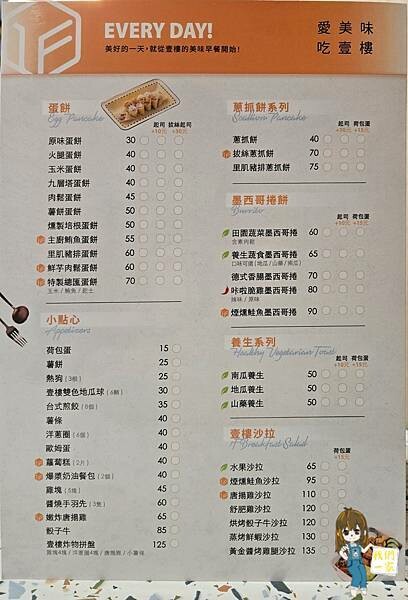 EVERY DAY!
美好的一天,就從壹樓的美味早餐開始!
愛美味
吃壹樓
蛋餅
Egg Pancake
起司 +10元
拔絲 +30元
原味蛋餅 30
火腿蛋餅 40
玉米蛋餅 40
九層塔蛋餅 40
肉鬆蛋餅 45
薯餅蛋餅 50
燻製培根蛋餅 50
主廚鮪魚蛋餅 55
里肌豬排蛋餅 60
鮮芋肉鬆蛋餅 60
特製總匯蛋餅 70
玉米 / 鮪魚 / 起士
小點心
Appetizers
荷包蛋 15
薯餅 25
熱狗 (3根) 25
壹樓雙色地瓜球 (6顆) 30
台式煎餃 (8個) 35
薯條 40
洋蔥圈 (6個) 40
歐姆蛋 40
蘿蔔糕 (2片) 40
爆漿奶油餐包 (2個) 40
雞塊 (5塊) 45
醬燒手羽先 (3隻) 60
嫩炸唐揚雞 65
骰子牛 85
壹樓炸物拼盤 125
雞塊4塊 / 洋蔥圈4塊 / 唐揚雞 / 小薯條
蔥抓餅系列
Scallion Pancake
起司 +10元
荷包蛋 +15元
蔥抓餅 40
拔絲蔥抓餅 70
里肌豬排蔥抓餅 75
墨西哥捲餅
Burrito
起司 +10元
荷包蛋 +15元
田園蔬菜墨西哥捲 60
含素肉鬆
養生蔬食墨西哥捲 65
口味可選 (地瓜 / 山藥 / 南瓜)
德式香腸墨西哥捲 80
咔啦脆雞墨西哥捲 80
辣味 / 原味
煙燻鮭魚墨西哥捲 90
養生系列
Healthy Vegetarian Toast
起司 +10元
荷包蛋 +15元
南瓜養生 50
地瓜養生 50
山藥養生 50
壹樓沙拉
A Breakfast Salad
荷包蛋 +15元
水果沙拉 65
煙燻鮭魚沙拉 95
唐揚雞沙拉 110
舒肥雞沙拉 120
烘烤骰子牛沙拉 120
蒸烤鮮蝦沙拉 130
黃金醬烤雞腿沙拉 135
我們一家